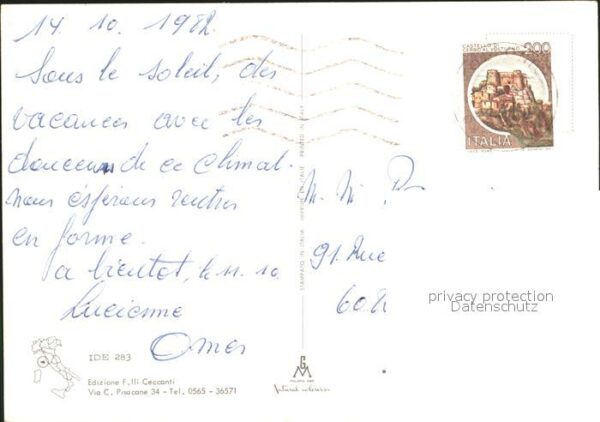 14. 10. 1982
Sous le soleil, des
vacances avec les
douceur de ce climat.
nous espérons rentrer
en forme.
a bientot,
Lucienne
Omer
CASTELLO DI
CERRO AL VOLTURNO
200
ITALIA
M. M.
91. Rue
privacy protection
Datenschutz
IDE 283
Edizione F.lli Ceccanti
Via C. Pisacane 34 - Tel. 0565 - 36571